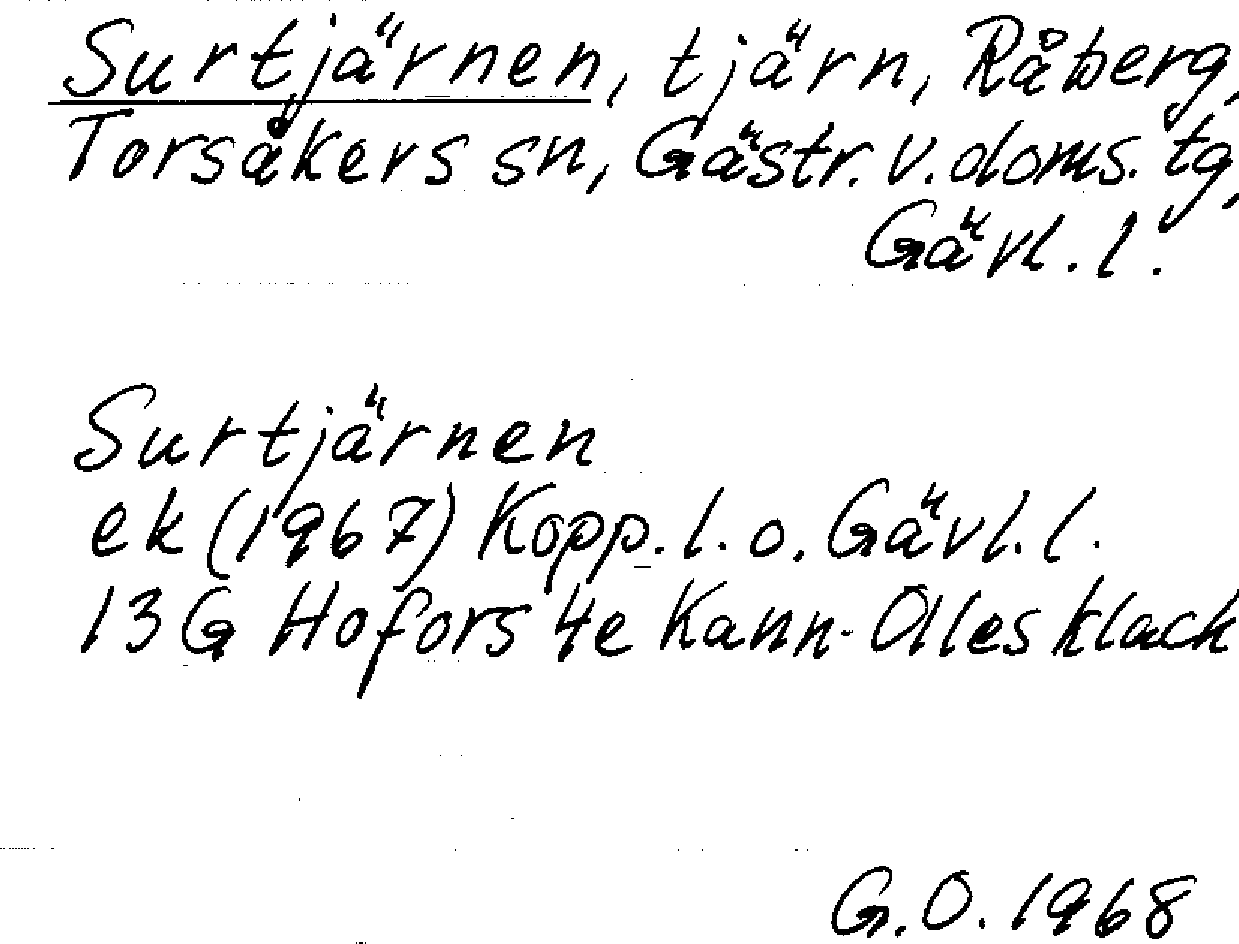 Surtjärnen, tjärn, Råberg,
Torsåkers sn, Gästr. v. doms. tg,
Gävl. l.
Surtjärnen
ek (1967) Kopp. l. o. Gävl. l.
13G Hofors 4e Kann-Olles klack
G.O. 1968